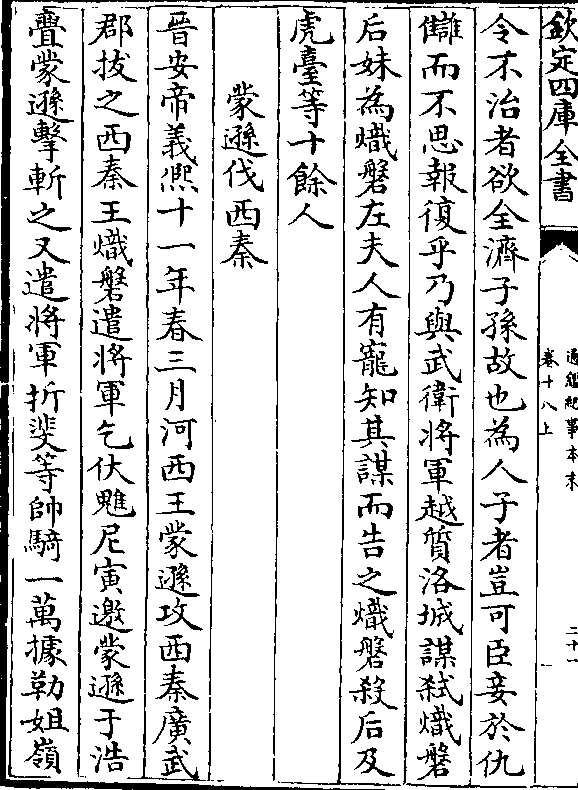 欽定四庫全書
通鑑紀事本末
卷十八上
二十一
令不治者欲全濟子孫故也為人子者豈可臣妾於仇
讎而不思報復乎乃與武衛將軍越質洛城謀弒熾磐
后妹為熾磐左夫人有寵知其謀而告之熾磐殺后及
虎臺等十餘人
蒙遜伐西秦
晉安帝義熙十一年春三月河西王蒙遜攻西秦廣武
郡拔之西秦王熾磐遣將軍乞伏魋尼寅邀蒙遜于浩
亹蒙遜擊斬之又遣將軍折斐等帥騎一萬據勒姐嶺